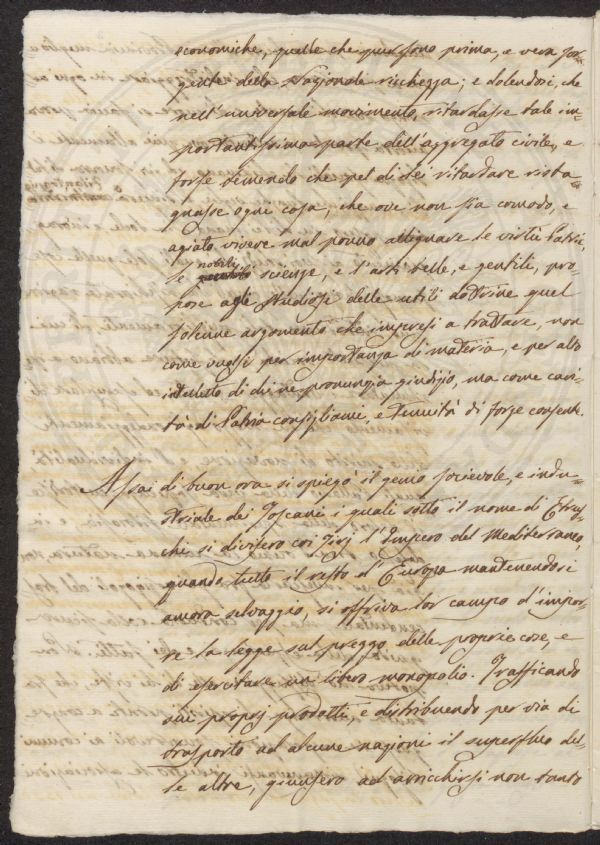 economiche, quelle che pur sono prima, e vera sor-
gente della Nazionale richezza; e dolendosi, che
nell'universale movimento, ritardasse tale im-
portantissima parte dell'aggregato civile, e
forse temendo che pel di lei ritardare rista-
gnasse ogni cosa, che ove non sia comodo, e
agiato vivere mal ponno allignare le virtù Patrie,
le nobili scienze, e l'arti belle, e gentili, pro-
pose agli studiosi delle utili dottrine quel
solenne argomento che impresi a trattare, non
come vuolsi per importanza di materia, e per alto
intelletto di chi ne pronunzia giudizio, ma come cari-
tà di Patria consigliami, e tenuità di forze consente.
Assai di buon ora si spiegò il genio socievole, e indu-
striale dei Toscani i quali sotto il nome di Etrus-
chi si divisero coi Tirj l'Impero del Mediterraneo,
quando tutto il resto d'Europa mantenendosi
ancora selvaggio, si offriva lor campo d'impor-
re la legge sul prezzo delle proprie cose, e
di esercitare un libero monopolio. Trafficando
sui proprj prodotti, e distribuendo per via di
trasporto ad alcune nazioni il superfluo del-
le altre, giunsero ad arricchirsi non tanto